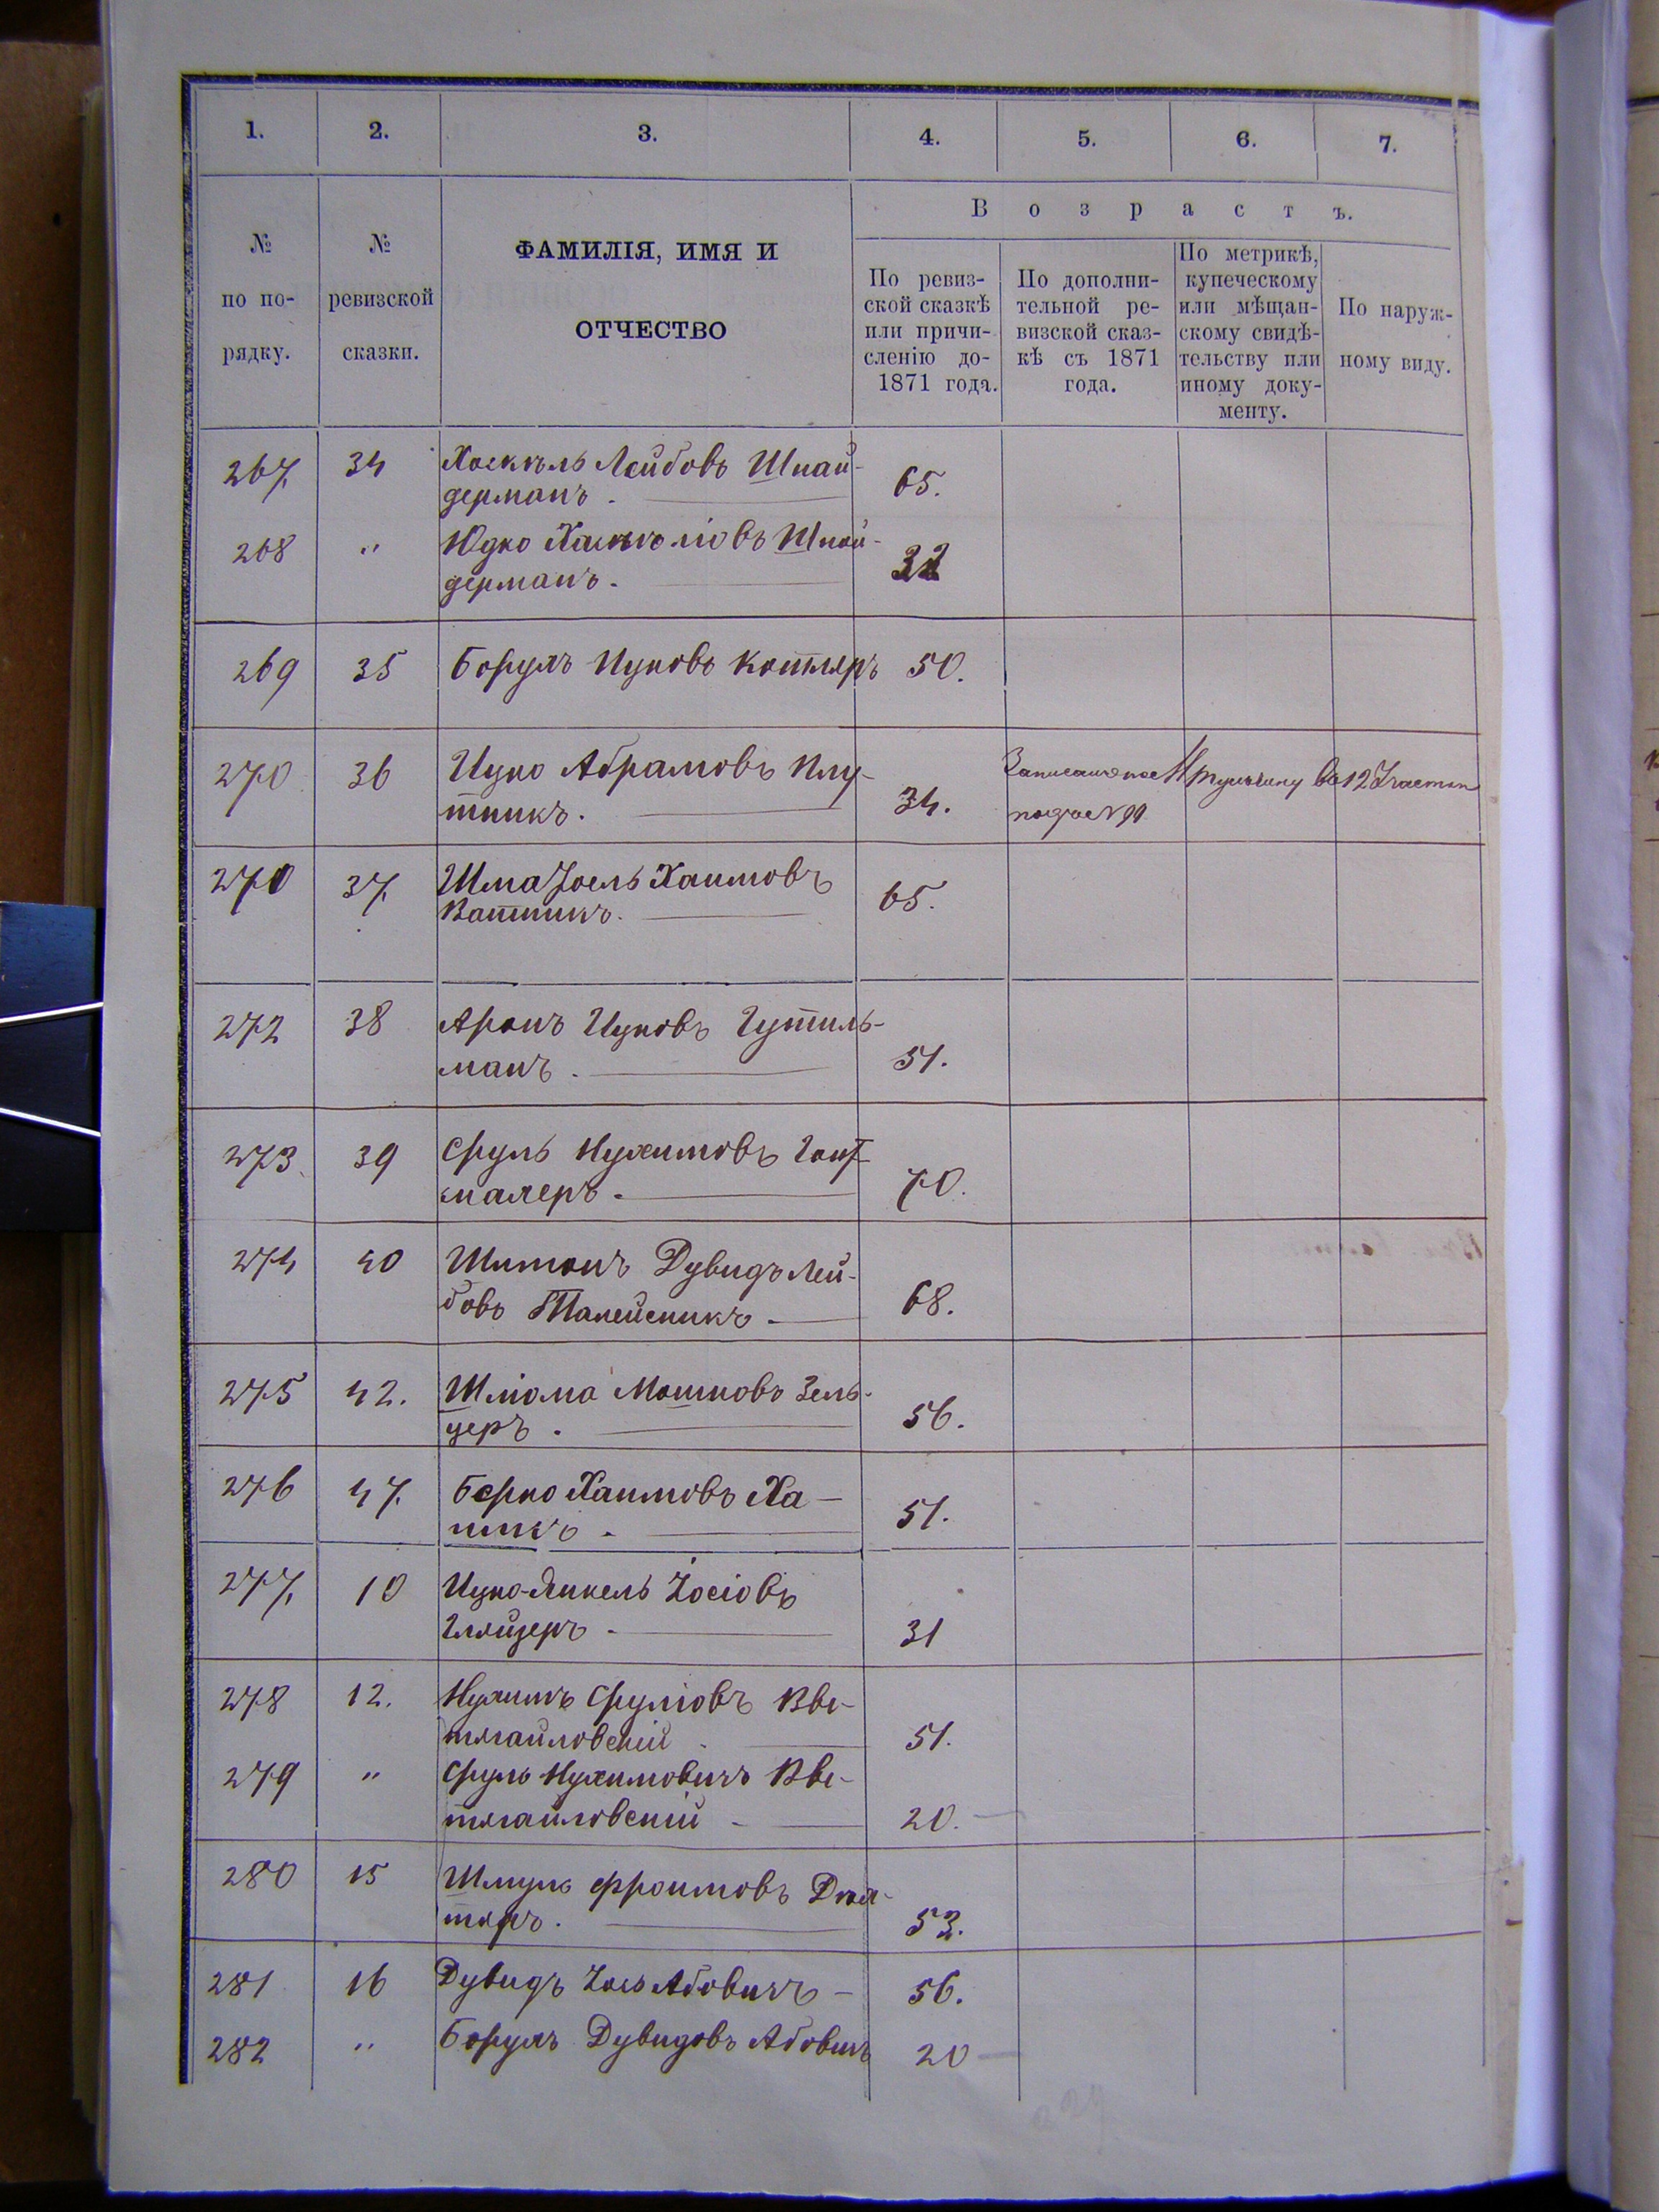 1. 2. 3. 4. 5. 6. 7.
№ по порядку.
№ ревизской сказки.
ФАМИЛІЯ, ИМЯ И
ОТЧЕСТВО
Возрастъ.
По ревиз-
ской сказкѣ
или причи-
сленію до
1871 года.
По дополни-
тельной ре-
визской сказ-
кѣ съ 1871
года.
По метрикѣ,
купеческому
или мѣщан-
скому свидѣ-
тельству или
иному доку-
менту.
По наруж-
ному виду.
267 34 Хаскель Лейбовъ Шнай-
дерманъ. 65.
268 " Юдко Хаскелiовъ Шнай-
дерманъ. 32
269 35 Борухъ Ицковъ Котляръ 50.
270 36 Ицко Абрамовъ Плу-
тникъ. 34.
во 12 Участкѣ
270 37 Шма Іоель Хаимовъ
Ватникъ. 65.
272 38 Аронъ Ицковъ Гутиль-
манъ. 51.
273 39 Сруль Нухимовъ
махеръ. 70.
274 40 Шимонъ Дувидъ Лей-
бовъ Талейсникъ 68.
275 42. Шліома Мошковъ Зель-
церъ. 56.
276 47. Берко Хаимовъ Ха-
51.
277 10 Ицко-Янкель Іосіовъ
Гляйзеръ. 31
278 12. Нухимъ Сруліовъ Вве-
51.
279 " Сруль Нухимовичъ Вве-
20.
280 15 Шмуль Фроимовъ Дех-
тяръ. 53.
281 16 Дувидъ Іось Абовичъ 56.
282 " Борухъ Дувидовъ Абовичъ 20